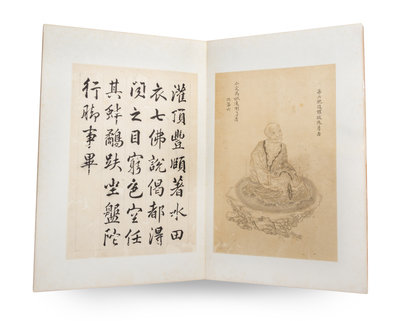 灌頂豐頤著水田
衣七佛說偈都得
聞之目窮色空任
其蚌鷸趺坐盤陀
行脚事畢